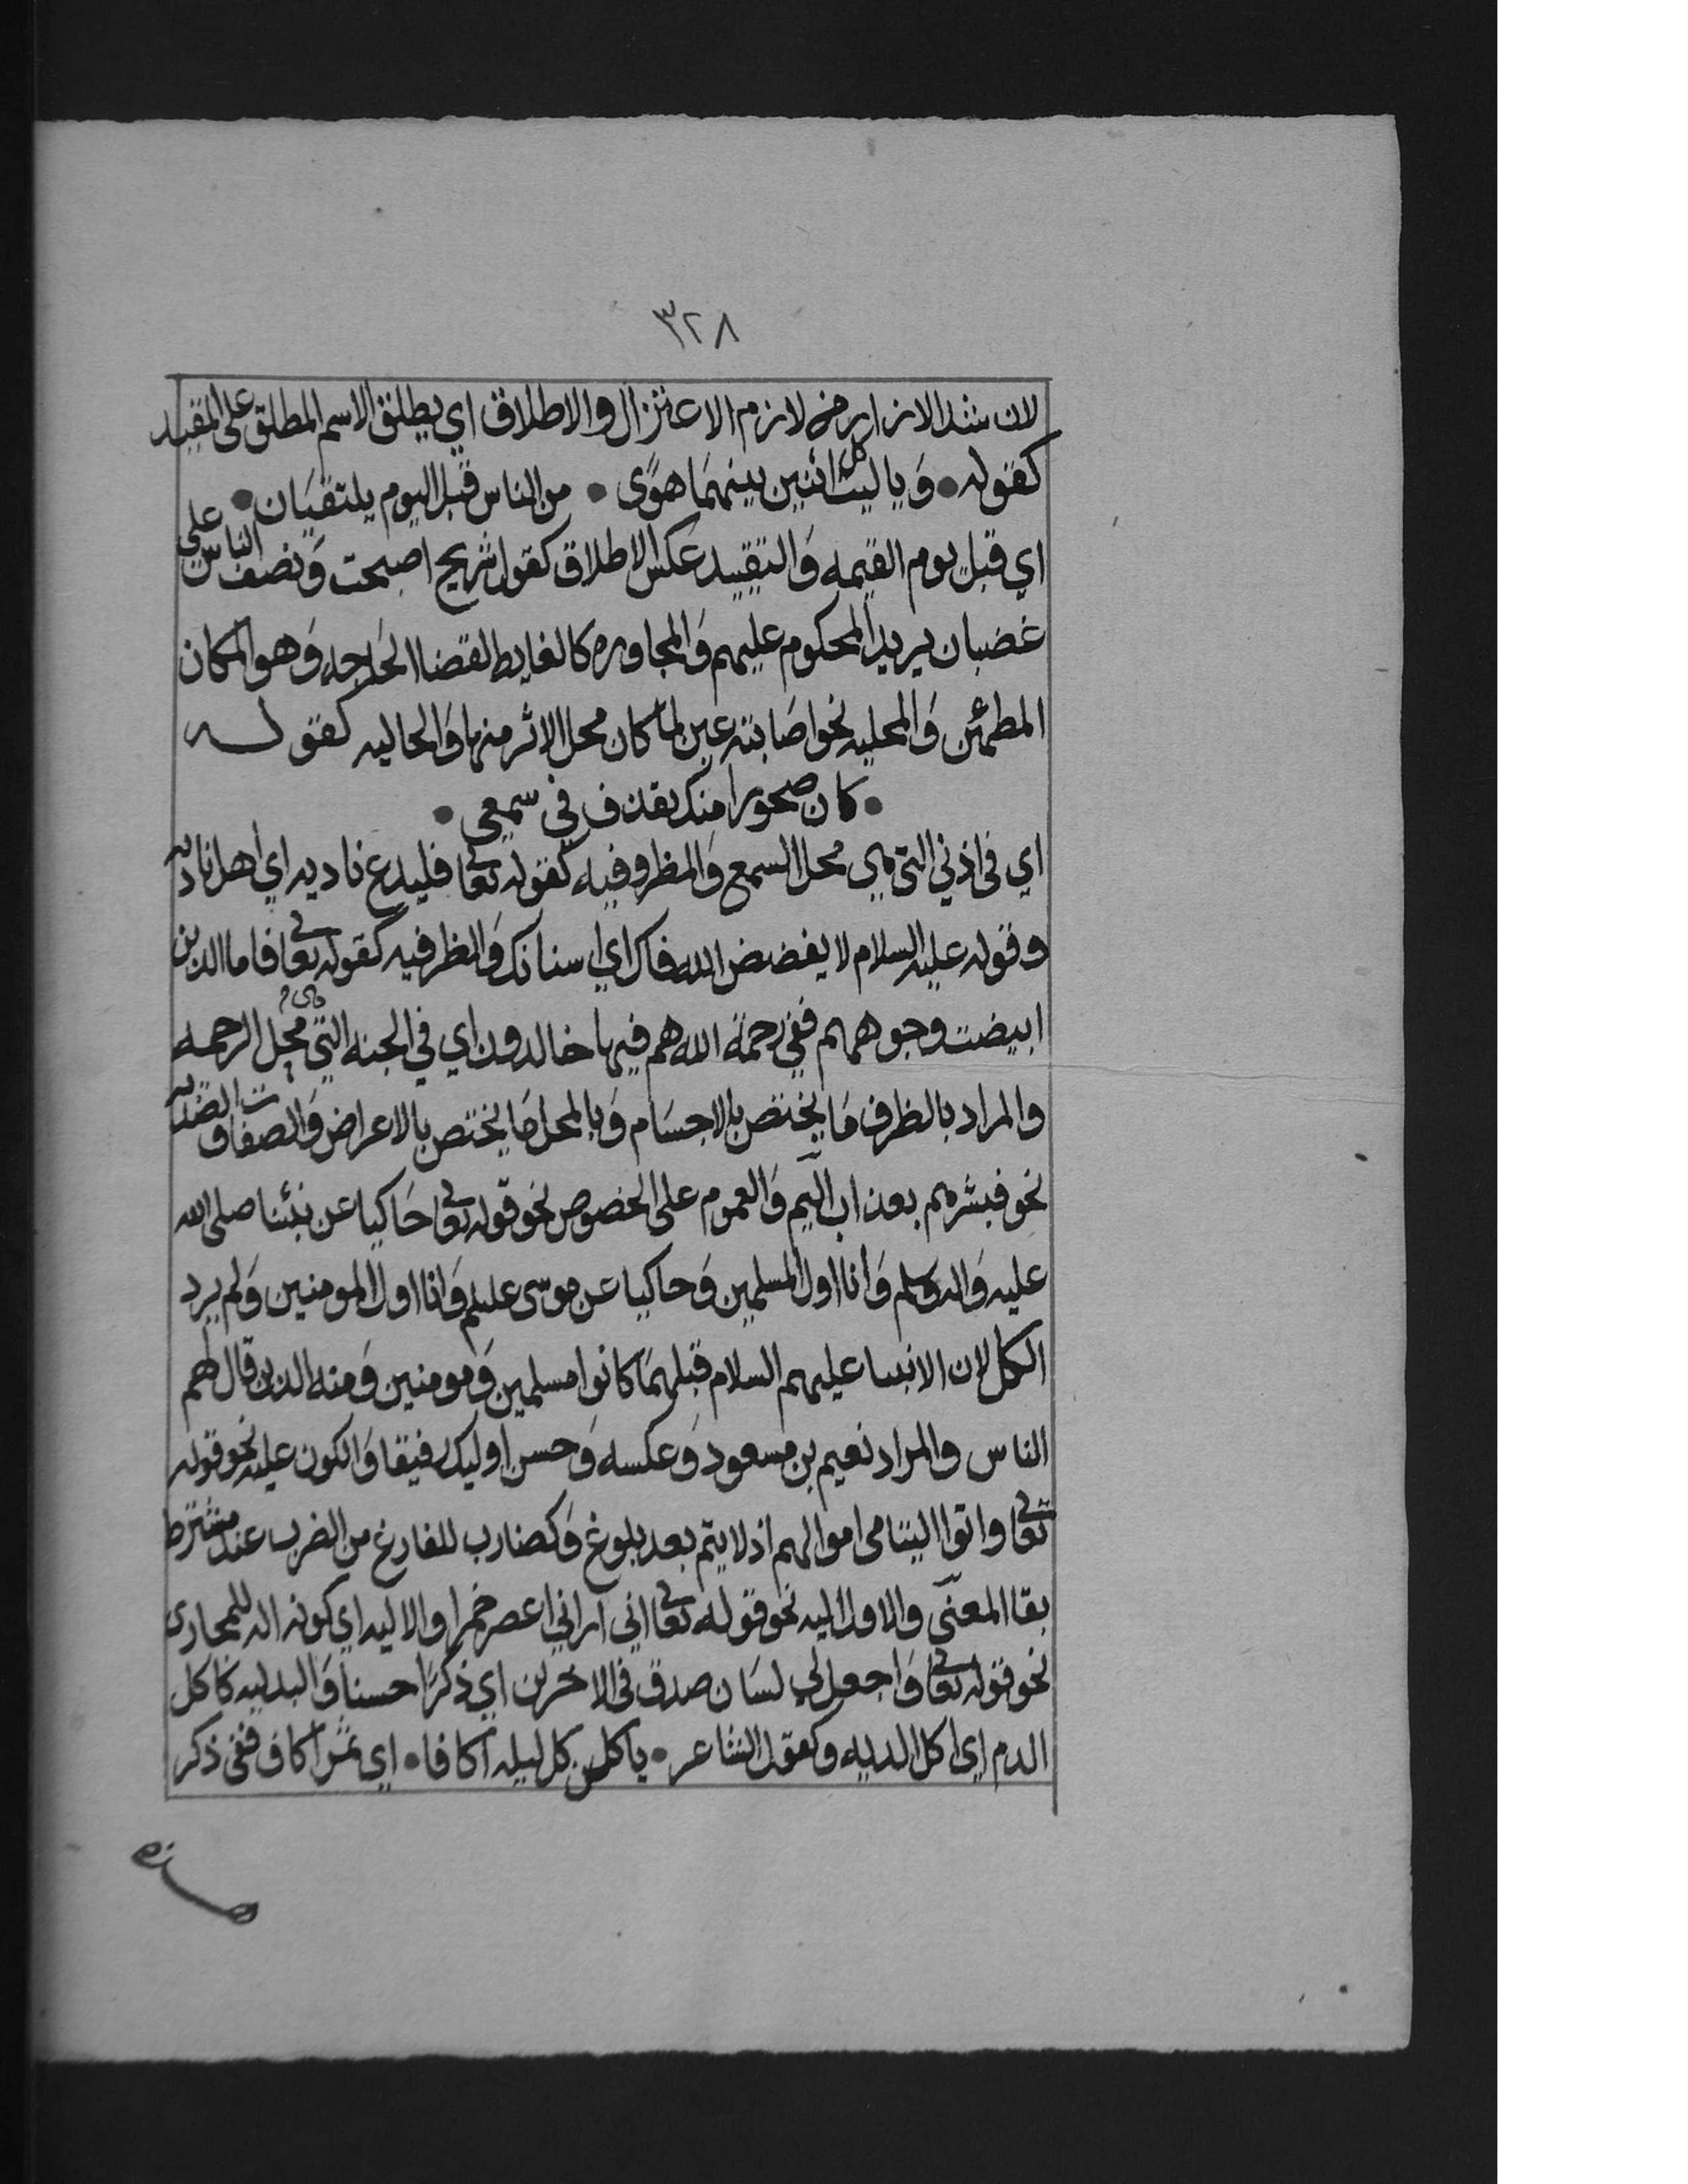 ٣٢٨
لان شد الازار من لازم الاعتزال والاطلاق اي يطلق الاسم المطلق على المقيد
كقوله • وَيا ليت كل اثنين بينهمَا هوًى • من الناس قبل اليوم يلتقيَان •
اي قبل يوم القيمه وَالتقييد عكس الاطلاق كقول شريح اصبحت وَنصف الناس علي
غضبان يريد المحكوم عليهم وَالمجاوره كالغايط لقضا الحَاجه وَهو المكان
المطمئن وَالمحليه نحو اصَابته عين لما كان محل الاثر منها وَالحاليه كقوله
• كان صحورا منك يقذف في سمعي •
اي في اذني التي هي محل السمع وَالمظروفيه كقوله تعالى فليدع ناديه اي اهل ناديه
وقوله عليه السلام لا يفضض الله فاك اي اسنانك وَالظرفيه كقوله تعالى فاما الذين
ابيضت وجوههم ففي رحمة الله هم فيها خالدون اي في الجنه التي هي محل الرحمه
والمراد بالظرف مَا يختص بالاجسَام وَبالمحل مَا يختص بالاعراض وَالصفات والضديه
نحو فبشرهم بعذاب اليم وَالعموم على الخصوص نحو قوله تعالى حَاكيا عن نبئنا صلى الله
عليه وَاله وسلم وَانا اول المسلمين وَحاكيا عن موسى عليلم وَانا اول المومنين وَلم يرد
الكل لان الانبيا عليهم السلام قبلهمَا كانوا مسلمين وَمومنين وَمنه الذين قال لهم
الناس والمراد نعيم بن مسعود وَعكسه وَحسن اوليك رفيقا وَالكون عليه نحو قوله
تعالى واتوا اليتامى اموالهم اذ لا يتم بعد بلوغ وَكضارب للفارغ من الضرب عند مشترط
بقا المعنى والاول اليه نحو قوله تعالى اني اراني اعصر خمرا والاليه اي كونه اله للمجازى
نحو قوله تعالى وَاجعل لي لسَان صدق في الاخرين اي ذكرًا حسنا وَالبدليه كاكل
الدم اي اكل الديه وكقول الشاعر • ياكلن كل ليله اكافا • اي ثمن اكاف ففي ذكر